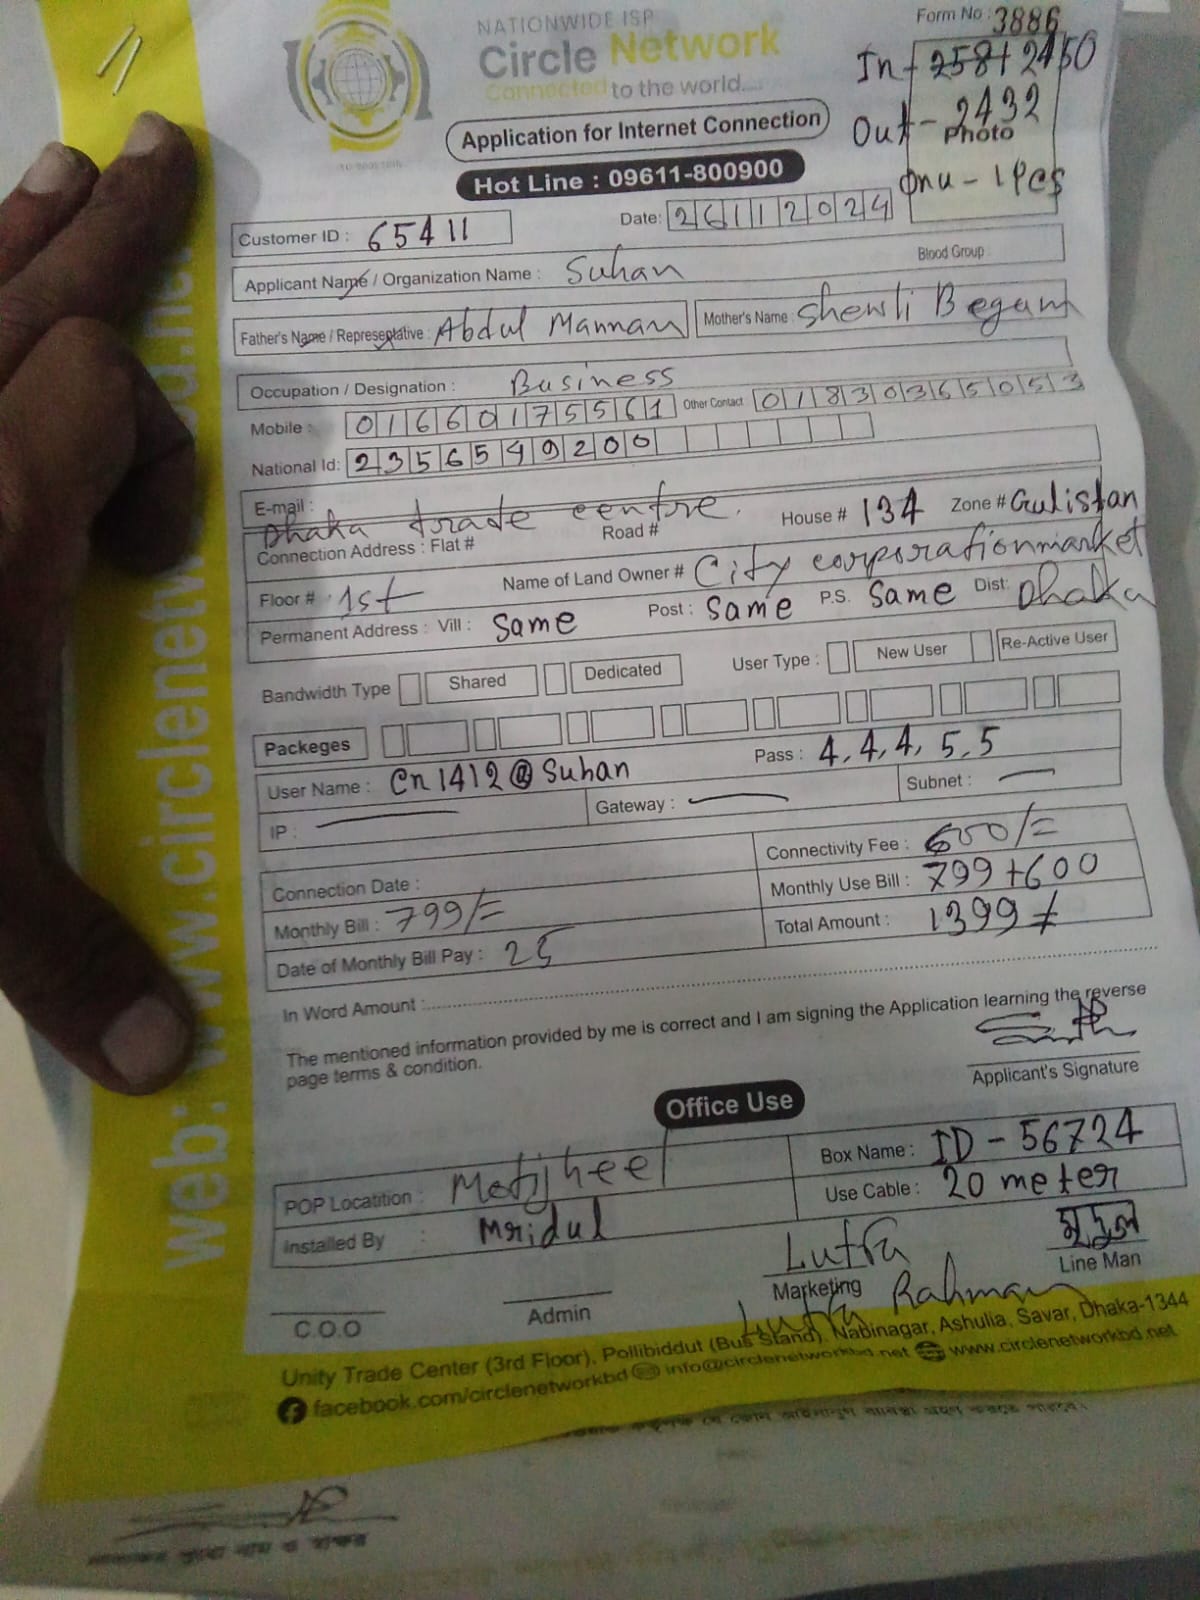 NATIONWIDE ISP
Circle Network
Connected to the world....
Form No : 3886
In - 2450
Out - 2432
Photo
Onu - 1 Pcs
Application for Internet Connection
Hot Line : 09611-800900
Customer ID : 65411
Date: 26112024
Applicant Name / Organization Name : Suhan
Blood Group
Father's Name / Represetative : Abdul Mannan
Mother's Name : Shewli Begum
Occupation / Designation : Business
Mobile : 01660175561 Other Contact 01830365053
National Id: 2356549200
E-mail :
Dhaka trade centre.
Connection Address : Flat # Road # House # 134 Zone # Gulistan
Floor # 1st Name of Land Owner # City corporationmarket
Permanent Address : Vill : Same Post : Same P.S. Same Dist: Dhaka
Bandwidth Type Shared Dedicated User Type : New User Re-Active User
Packeges
User Name : Cn1412@Suhan Pass : 4,4,4,5,5
IP : — Gateway : — Subnet : —
Connection Date : Connectivity Fee : 600/=
Monthly Bill : 799/= Monthly Use Bill : 799+600
Date of Monthly Bill Pay : 25 Total Amount : 1399/=
In Word Amount :
The mentioned information provided by me is correct and I am signing the Application learning the reverse
page terms & condition.
Applicant's Signature
Office Use
POP Locatition : Motijheel Box Name : ID - 56724
Installed By : Mridul Use Cable : 20 meter
Lutfa মৃদুল
C.O.O Admin Marketing Line Man
Lutfa Rahman
Unity Trade Center (3rd Floor), Pollibiddut (Bus Stand), Nabinagar, Ashulia, Savar, Dhaka-1344
facebook.com/circlenetworkbd info@circlenetworkbd.net www.circlenetworkbd.net
web: www.circlenetworkbd.net